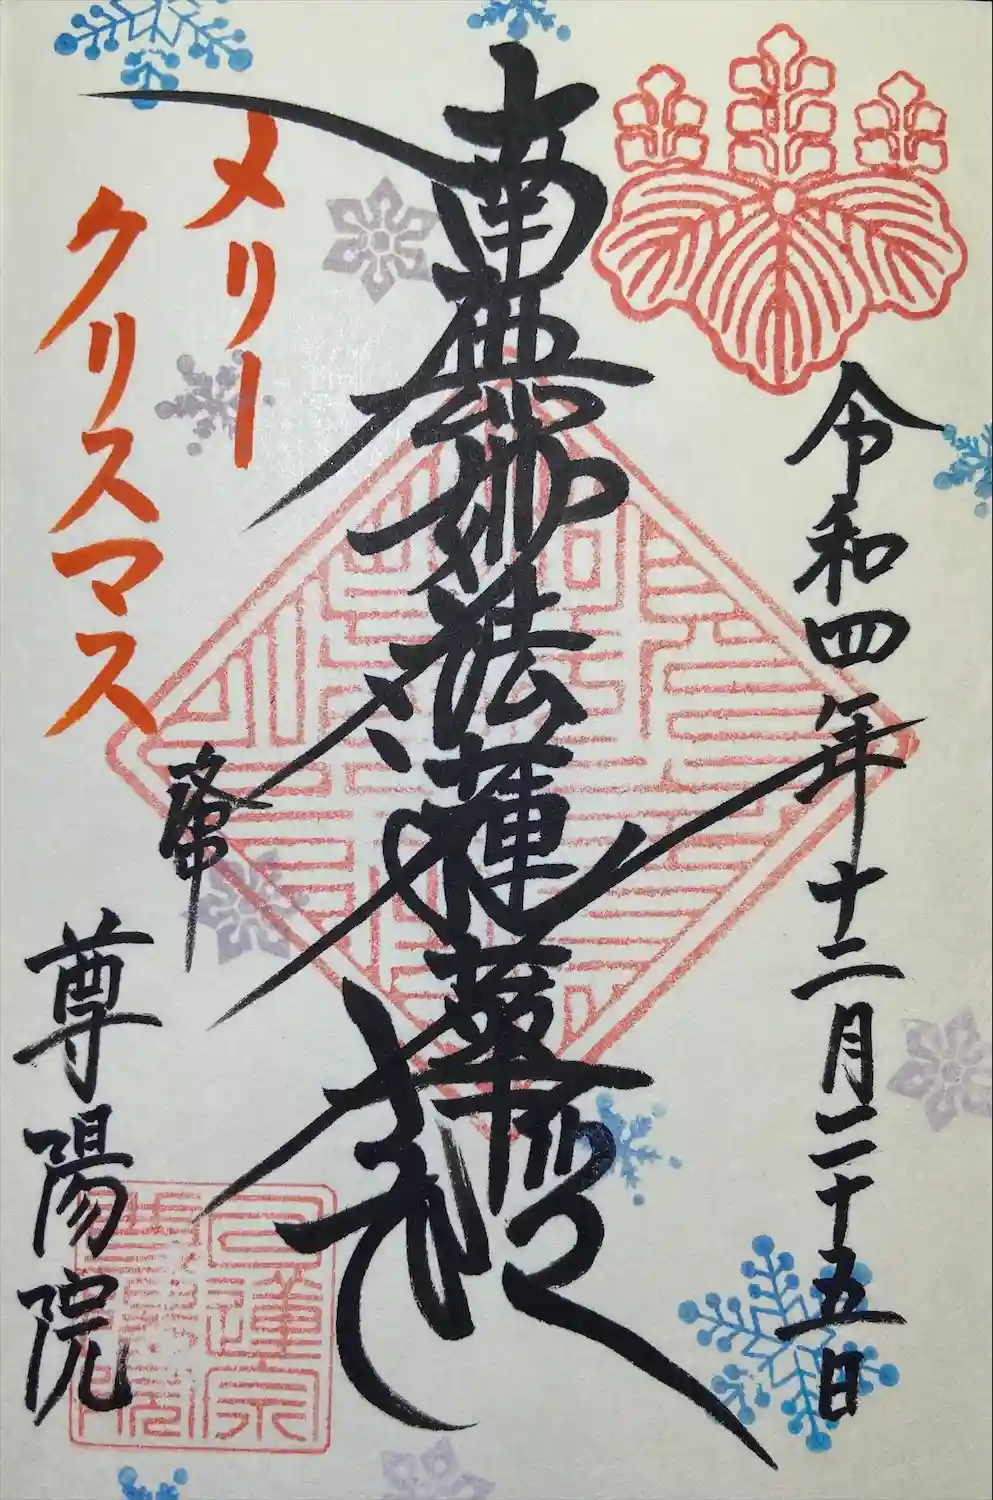 令和四年十二月二十五日
南無妙法蓮華経
メリー
クリスマス
尊陽院
日蓮宗
尊陽院